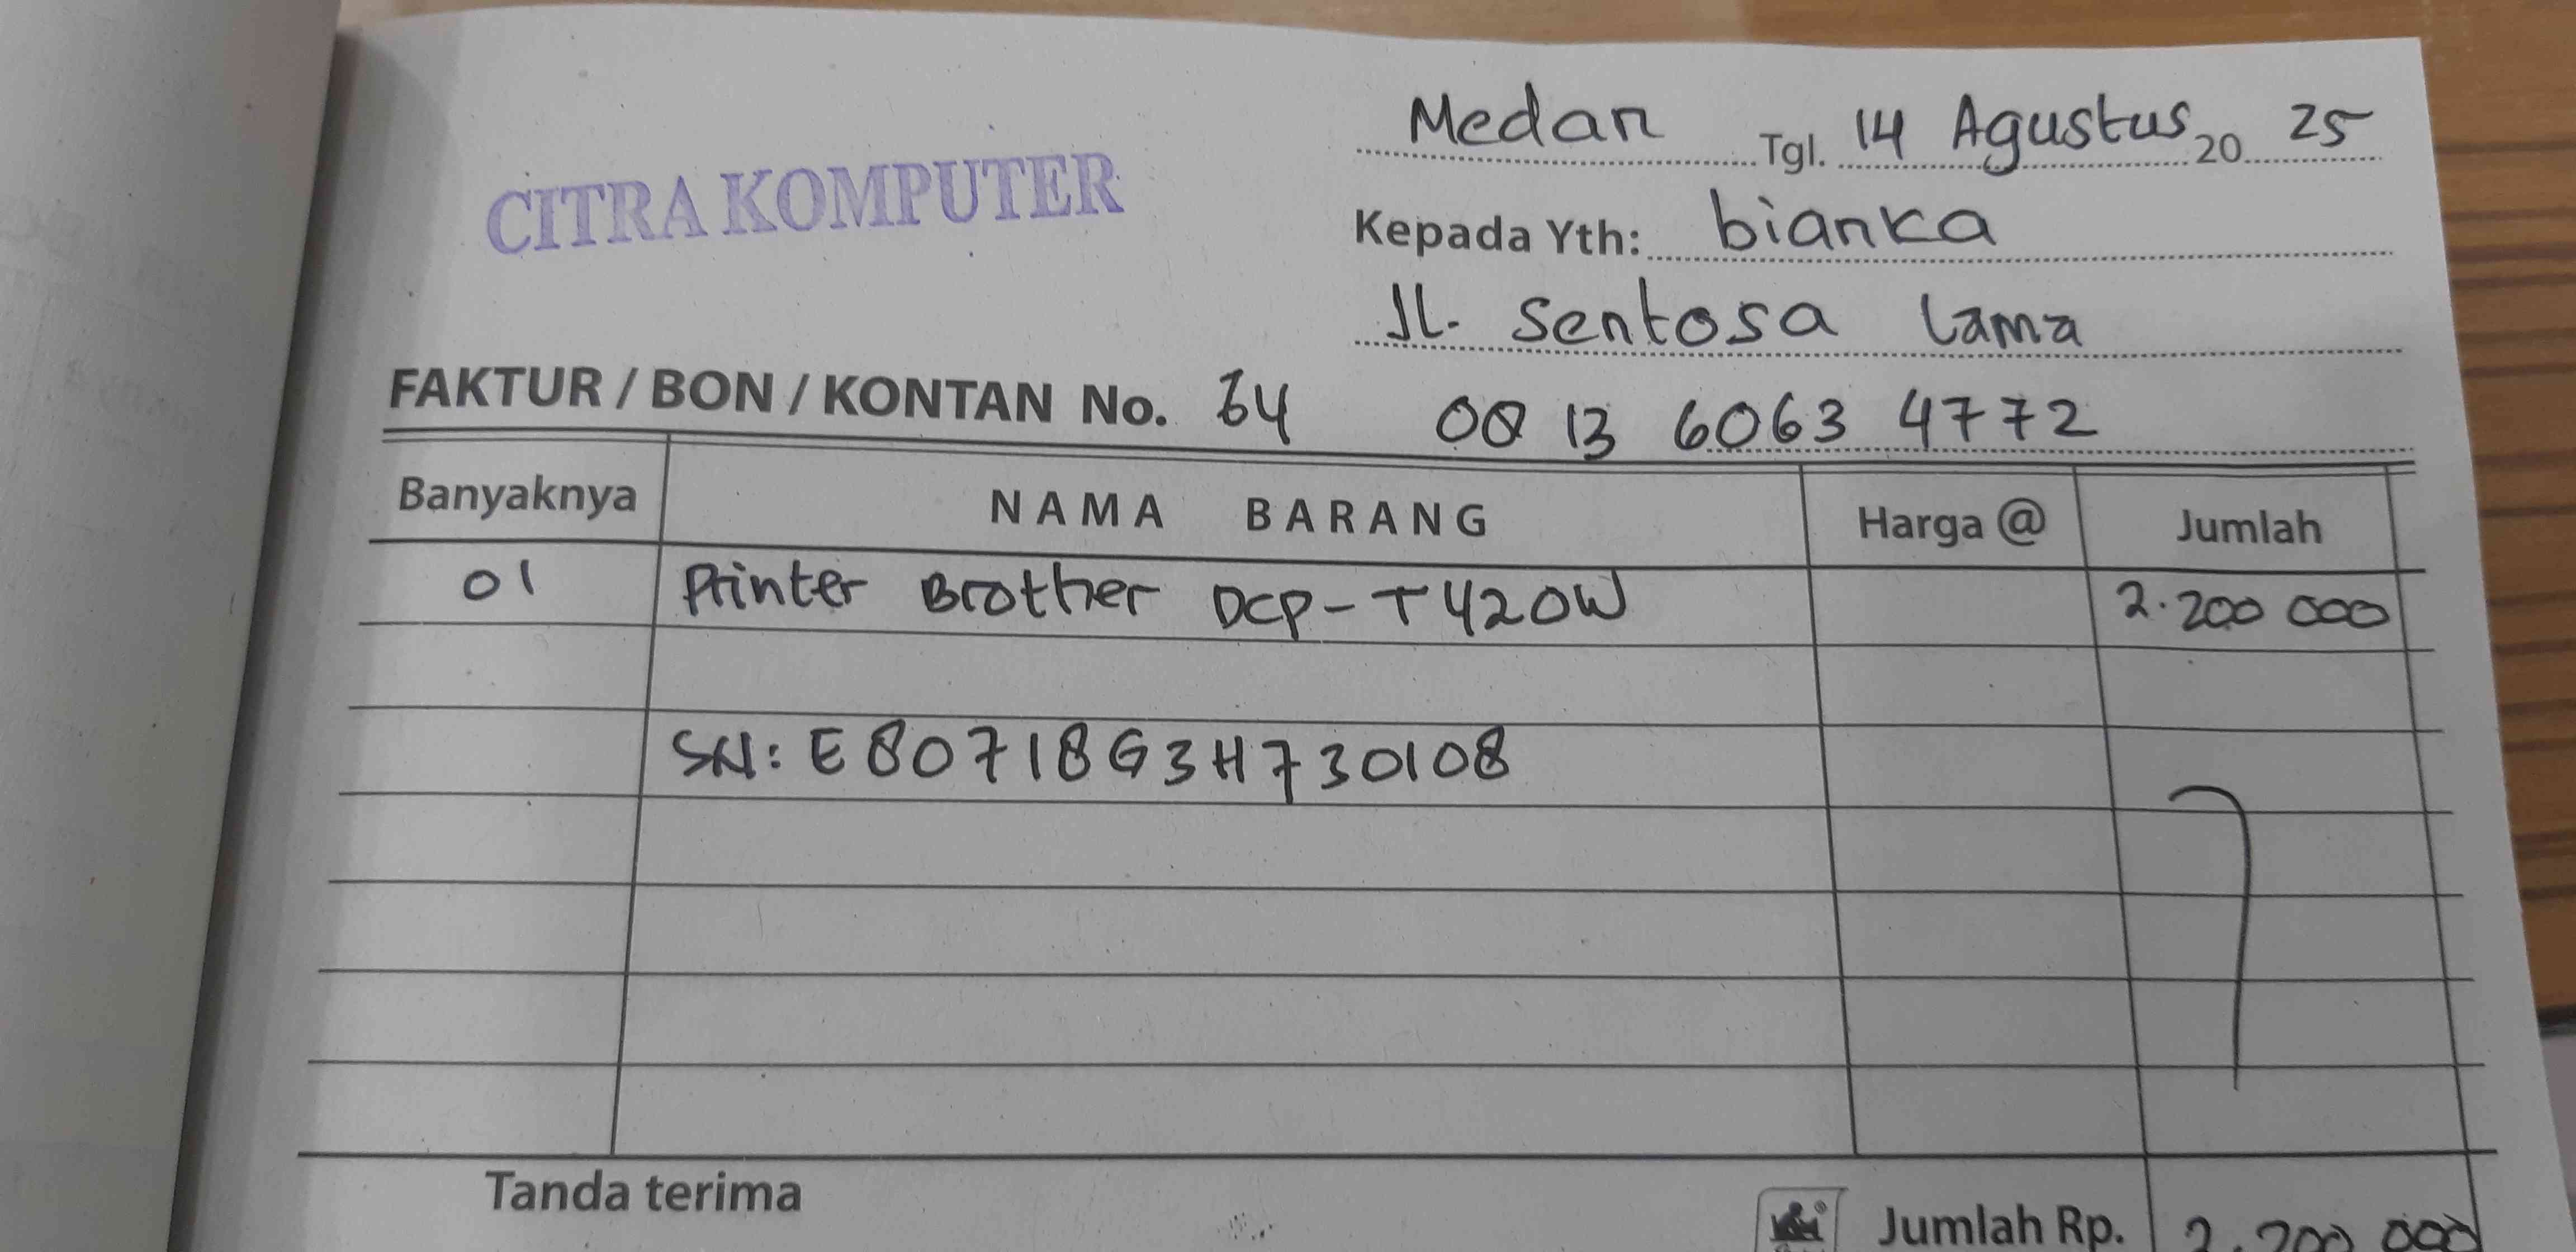 Medan Tgl. 14 Agustus 20 25
CITRA KOMPUTER
Kepada Yth: bianka
Jl. Sentosa Lama
FAKTUR / BON / KONTAN No. 64 08 13 6063 4772
Banyaknya NAMA BARANG Harga @ Jumlah
01 Printer Brother DCP-T420W 2.200 000
SN: E80718G3H730108
Tanda terima
Jumlah Rp. 2.200 000